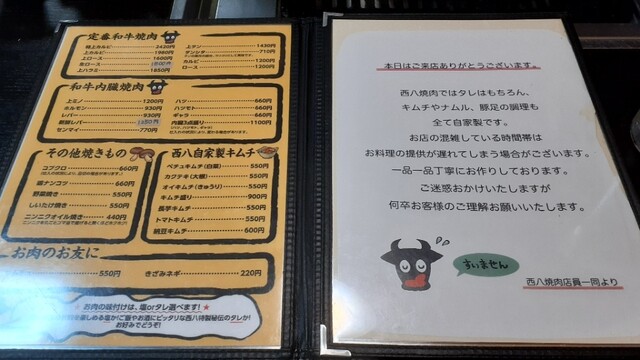 定番和牛焼肉
特上カルビ 2420円
上カルビ 1980円
上ロース 1600円
生ロース
上ハラミ 1850円
上タン 1430円
タンシタ 710円
カルビ 1200円
ロース 1200円
和牛内臓焼肉
上ミノ 1200円
ホルモン 930円
レバー 930円
センマイ 770円
ハツ 660円
ハツモト 660円
ギャラ 660円
内臓3点盛り 1100円
(ハツ、ハツモト、ギャラ)
その他焼きもの
コブクロ 660円
鶏ナンコツ 550円
野菜焼き 550円
しいたけ焼き 550円
ニンニクオイル焼き 440円
西八自家製キムチ
ペチュキムチ(白菜) 550円
カクテキ(大根) 550円
オイキムチ(きゅうり) 550円
キムチ盛り 900円
長芋キムチ 550円
トマトキムチ 550円
納豆キムチ 600円
お肉のお友に
550円
きざみネギ 220円
お肉の味付けは、塩orタレ選べます!
を楽しめる塩か!ご飯やお酒にピッタリな西八特製秘伝のタレか!
お好みでどうぞ!
本日はご来店ありがとうございます。
西八焼肉ではタレはもちろん、
キムチやナムル、豚足の調理も
全て自家製です。
お店の混雑している時間帯は
お料理の提供が遅れてしまう場合がございます。
一品一品丁寧にお作りしております。
ご迷惑おかけいたしますが
何卒お客様のご理解お願いいたします。
すいません
西八焼肉店員一同より